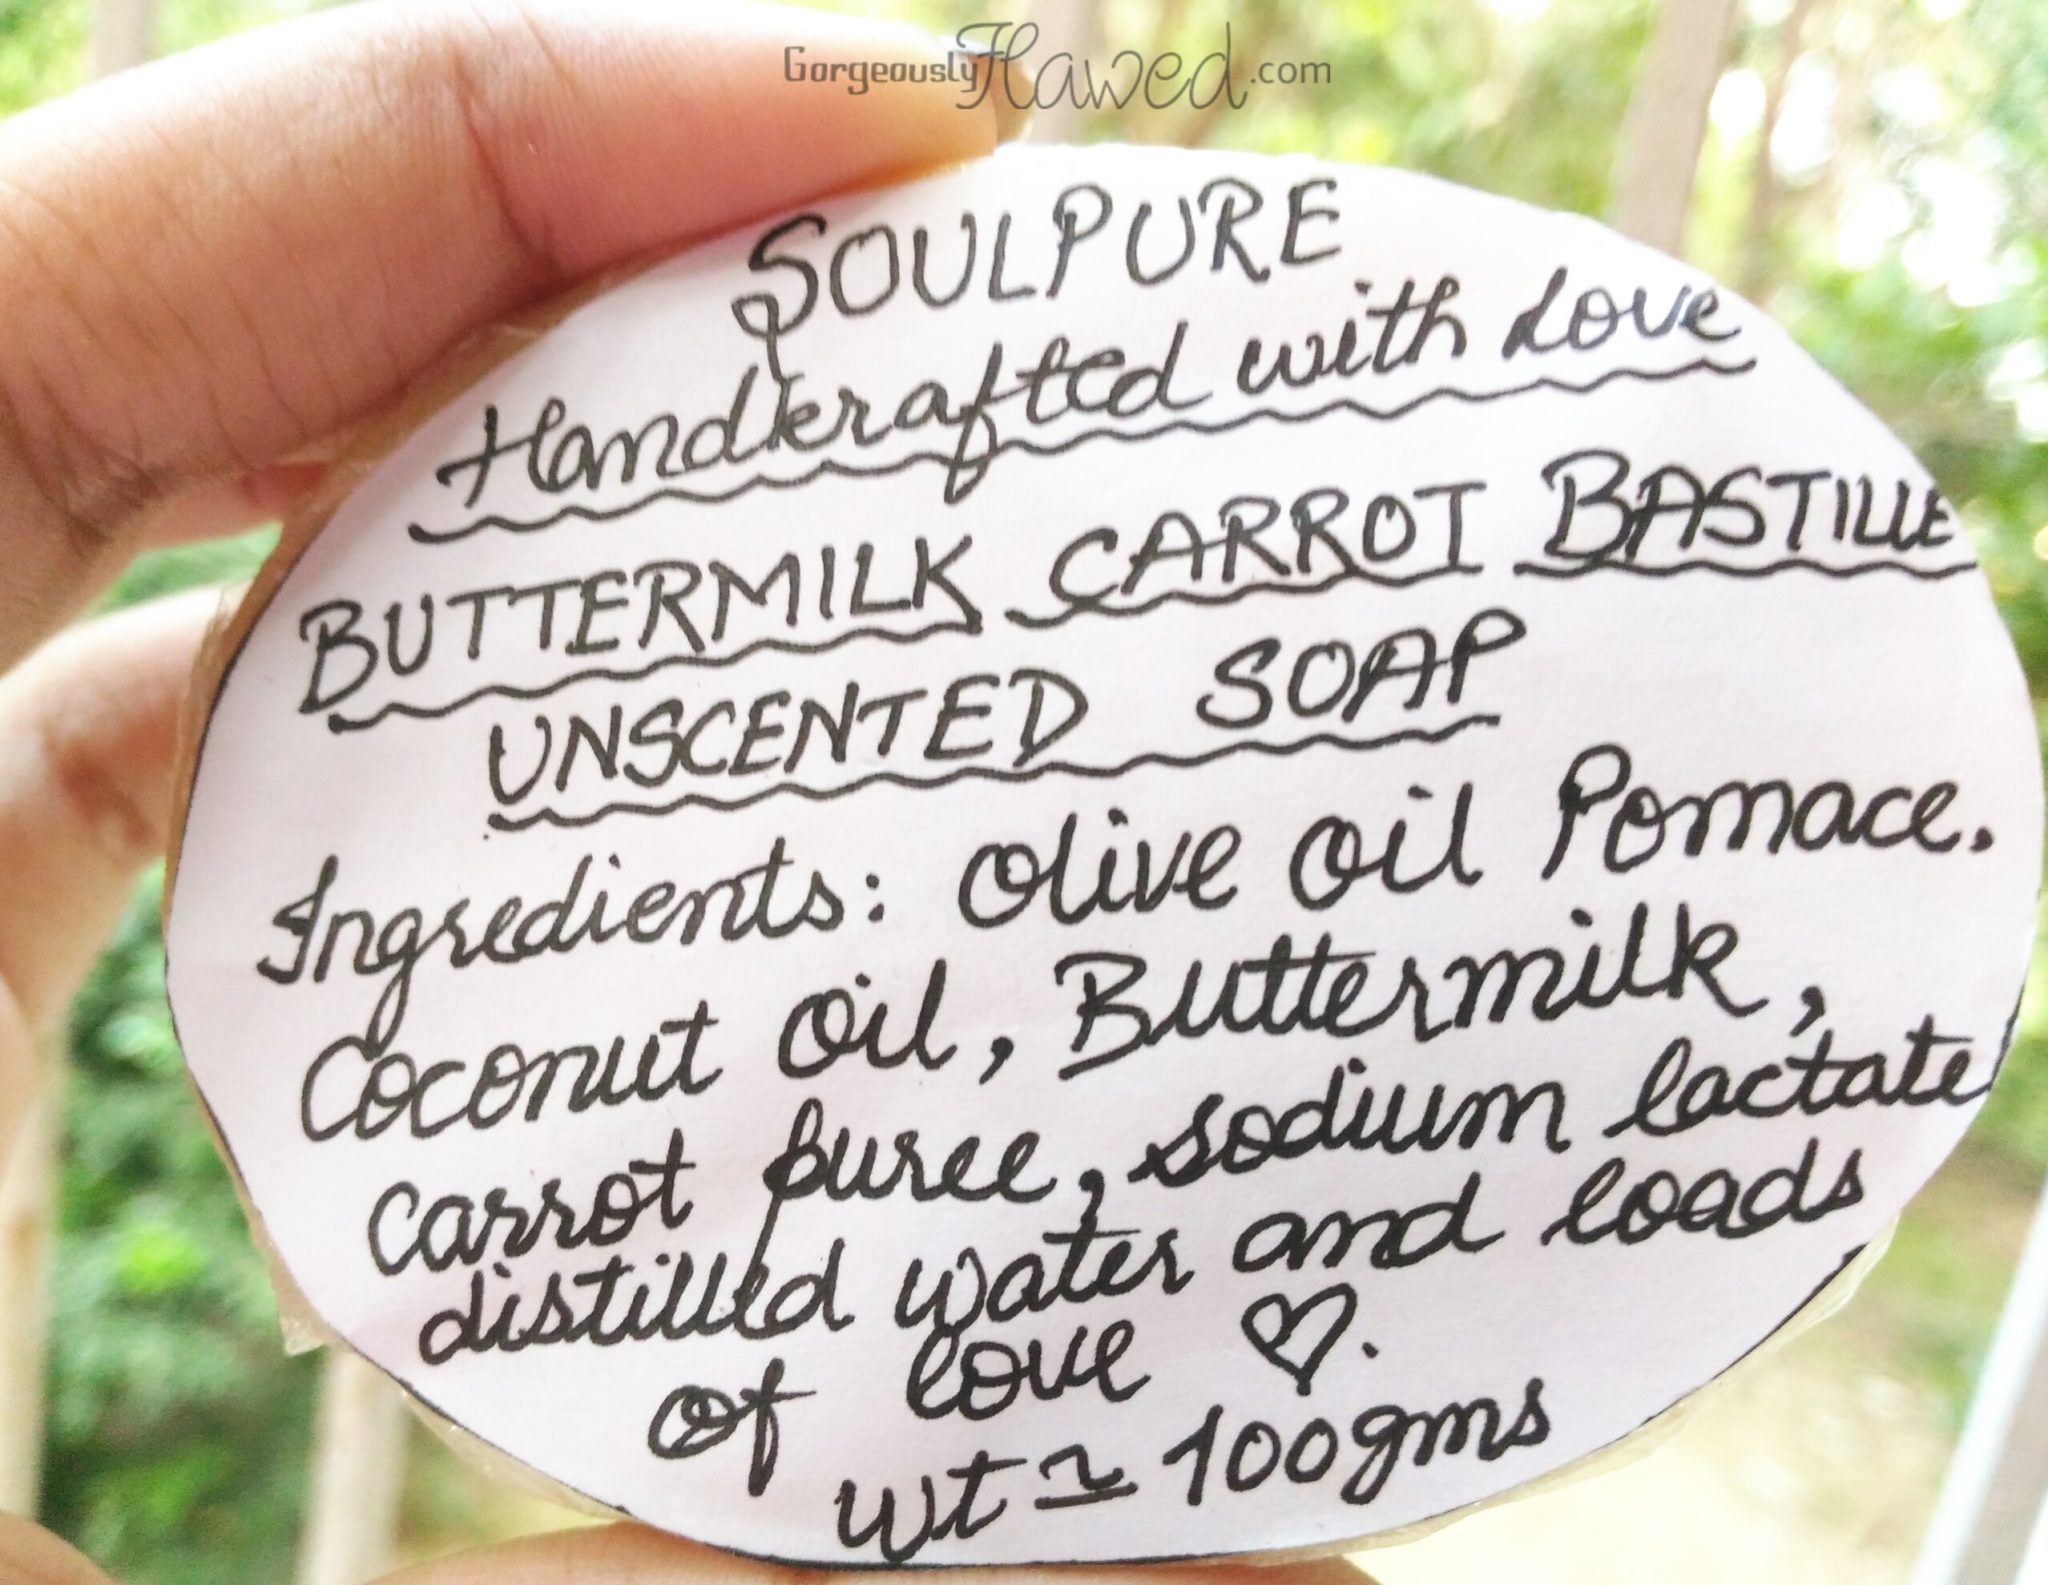 GorgeouslyFlawed.com
SOULPURE
Handcrafted with Love
BUTTERMILK CARROT BASTILLE
UNSCENTED SOAP
Ingredients: Olive oil Pomace.
Coconut oil, Buttermilk,
Carrot puree, sodium lactate
distilled water and loads
of love ♡.
wt ≃ 100gms